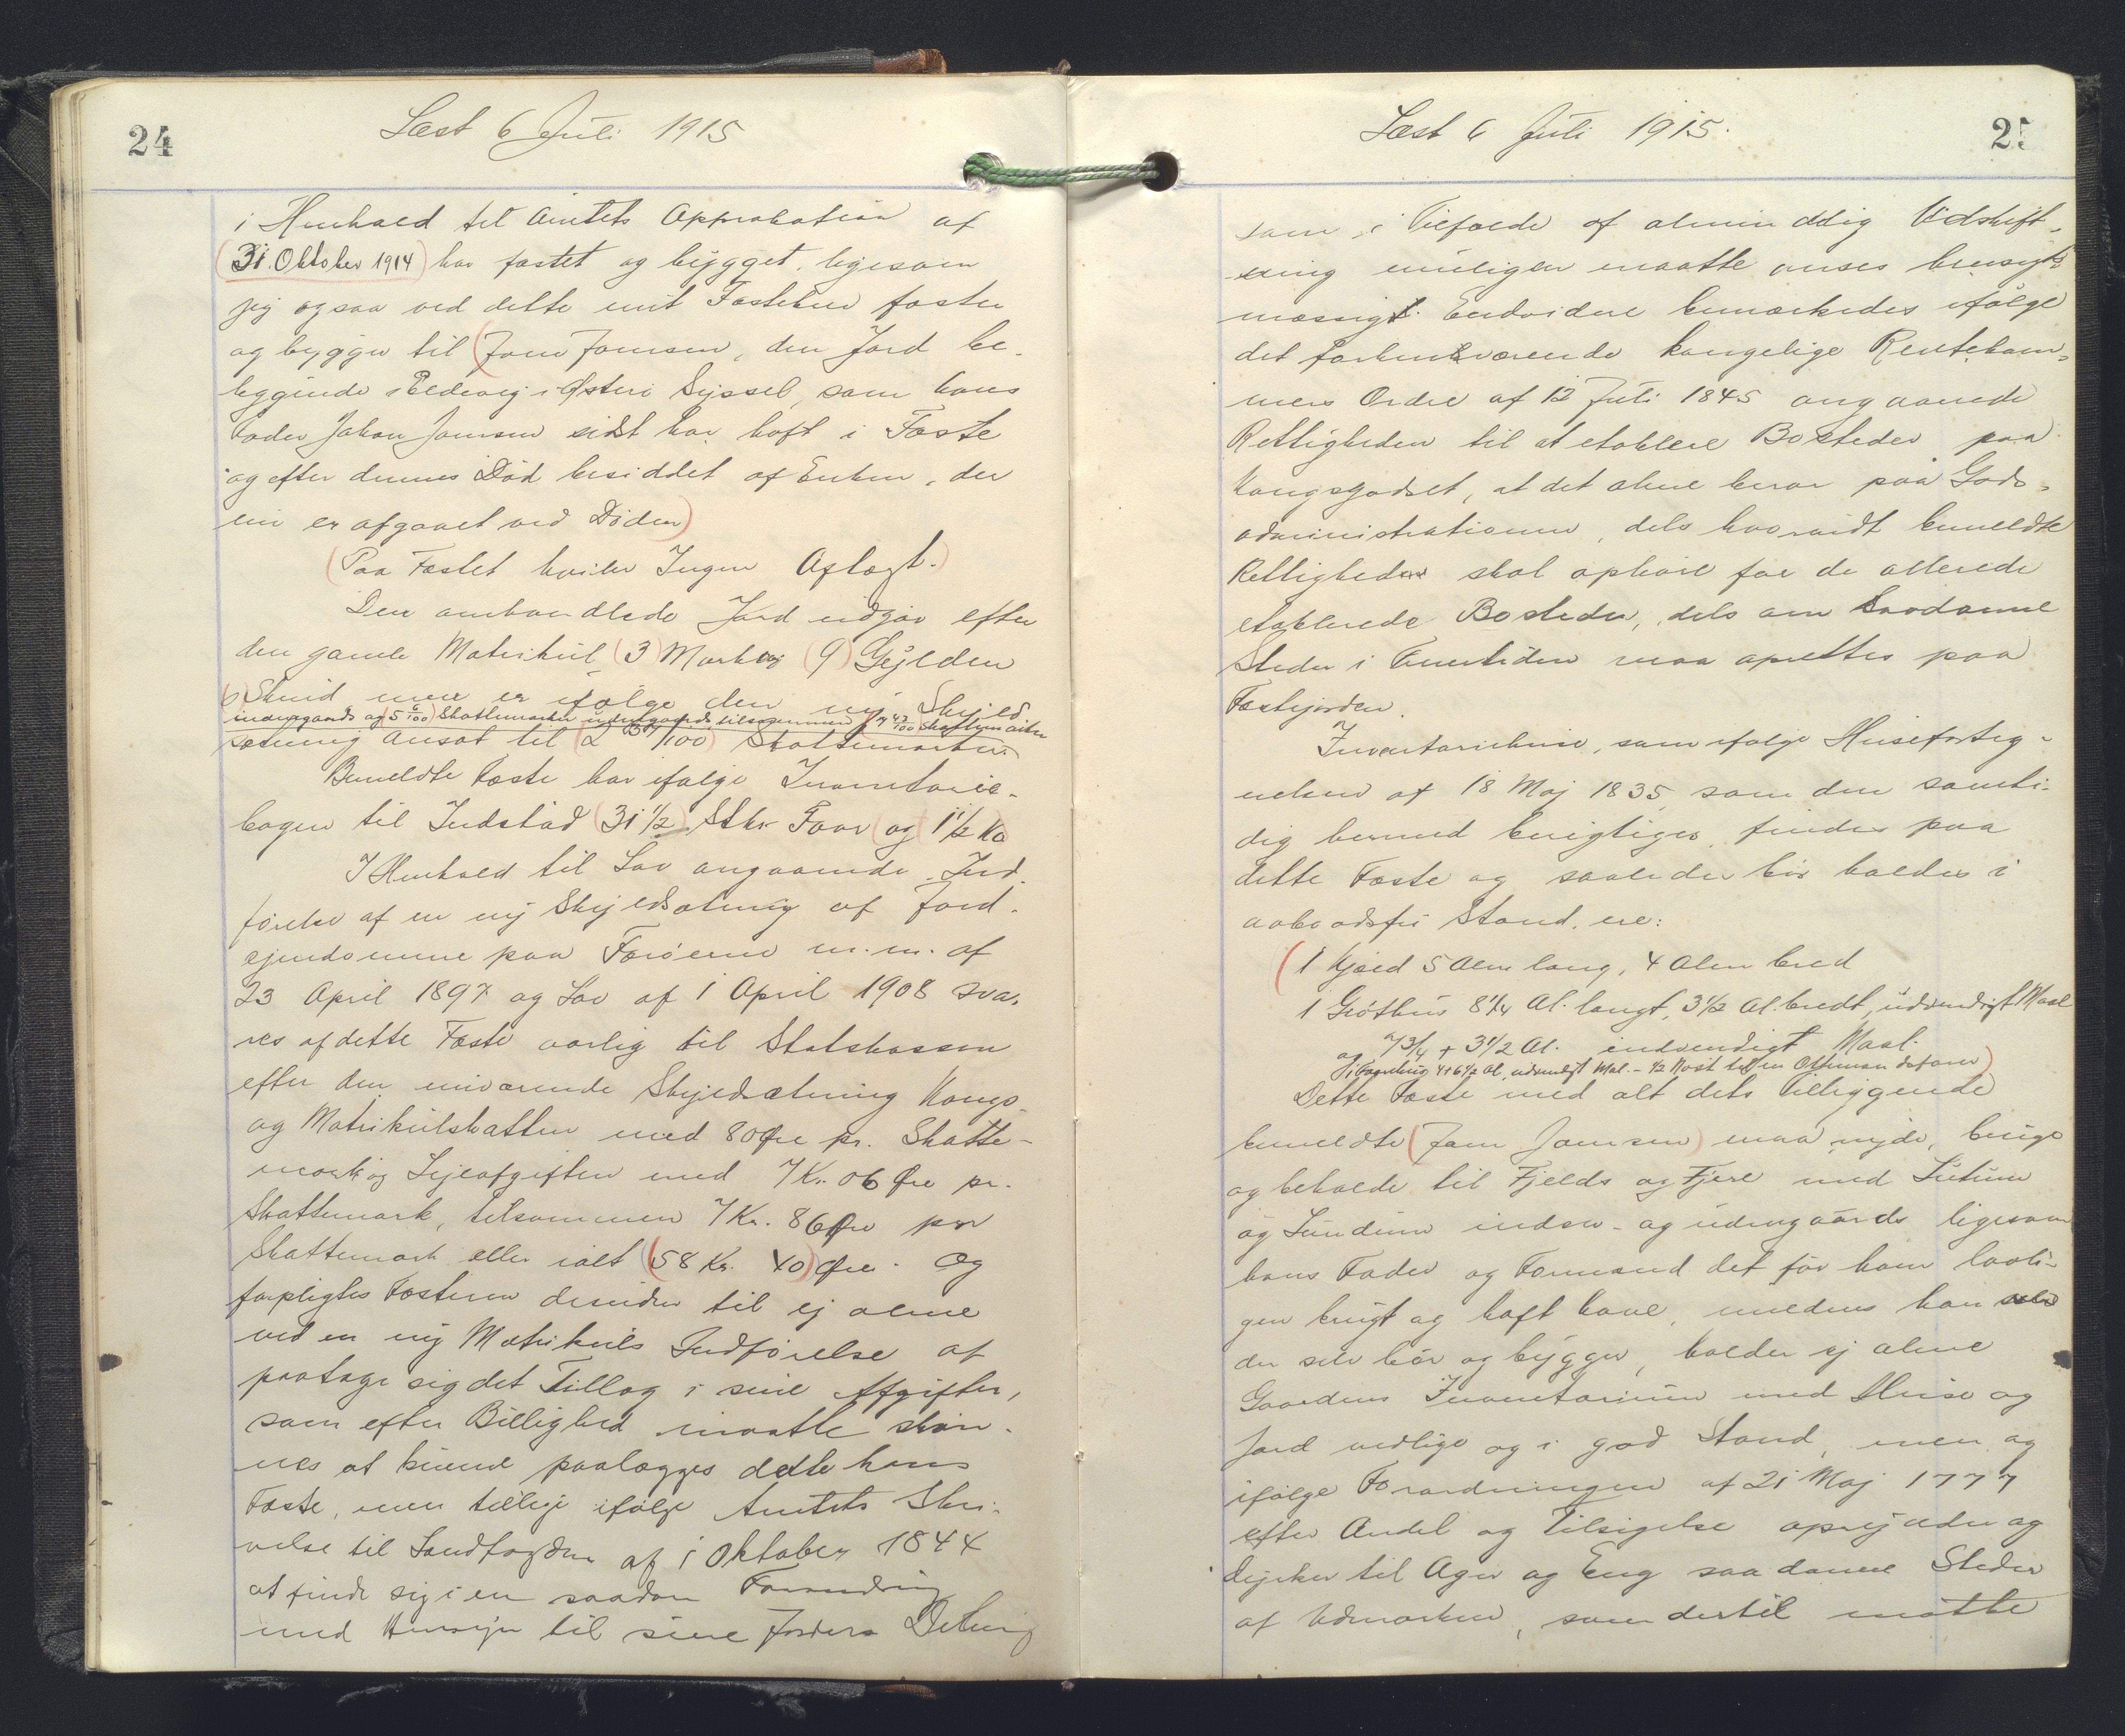 24
Læst 6 Juli 1915
i Henhold til Amtets Approbation af
31. Oktober 1914 har fæstet og bygget, ligesom
jeg ogsaa ved dette mit Fæstebrev fæster
og bygger til Joen Joensen, den Jord be-
liggende i Eldevig i Østerø Syssel, som hans
Fader Johan Joensen sidst har haft i Fæste
og efter dennes Død besiddet af Enken, der
nu er afgaaet ved Døden
Paa Fæstet hviler Ingen Aftægt.
Den omhandlede Jord udgør efter
den gamle Matrikul 3 Mark og 9 Gylden
6 Skind men er ifølge den ny Skyld
indengaards og 5 6/100 Skattemarker udengaards tilsammen 7 43/100 Skattemarker
sætning ansat til 2 37/100 Skattemarker.
Bemeldte Fæste har ifølge Inventarie-
bogen til Indstad 31 1/2 Stkr Faar og 1 1/2 Ko
I Henhold til Lov angaaende Ind-
førelse af en ny Skyldsætning af Jord-
ejendomme paa Færøerne m.m. af
23 April 1897 og Lov af 1 April 1908 sva-
res af dette Fæste aarlig til Statskassen
efter den nuværende Skyldsætning Kongs-
og Matrikulskatten med 80 Øre pr. Skatte-
mark og Lejeafgiften med 7 Kr. 06 Øre pr.
Skattemark, tilsammen 7 Kr. 86 Øre pr
Skattemark eller ialt 58 Kr. 40 Øre. Og
forpligtes Fæsteren desuden til ej alene
ved en ny Matrikuls Indførelse at
paatage sig det Tillæg i sine Afgifter,
som efter Billighed maatte skøn-
nes at kunne paalægges dette hans
Fæste, men tillige ifølge Amtets Skri-
velse til Landfogden af 1 Oktober 1844
at finde sig i en saadan Forandring
med Hensyn til sine Jorders Deling
25
Læst 6 Juli 1915.
som i Tilfælde af almindelig Udskift-
ning muligen maatte anses hensigts-
mæssigt. Endvidere bemærkedes ifølge
det forhenværende kongelige Rentekam-
mers Ordre af 12 Juli 1845 angaaende
Rettigheden til at etablere Bosteder paa
Kongsgodset, at det alene beror paa Gods-
administrationen, dels hvorvidt bemeldte
Rettigheder skal ophøre for de allerede
etablerede Bosteder, dels om saadanne
Steder i Fremtiden maa oprettes paa
Fæstejorden.
Inventariehuse, som ifølge Huseforteg-
nelsen af 18 Maj 1835, som den samti-
dig hermed berigtiges, findes paa
dette Fæste og saaledes bør holdes i
aabodsfri Stand, ere:
1 Hjald 5 Alen lang, 4 Alen bred
1 Gróthus 8 1/4 Al. langt, 3 1/2 Al. bredt, udvendigt Maal
og 7 3/4 + 3 1/2 Al. indvendigt Maal.
Dette Fæste med alt dets Tilliggende
bemeldte Joen Joensen maa nyde, bruge
og beholde til Fjelds og Fjære med Lutum
og Lundum inden- og udengaards ligesom
hans Fader og Formand det før ham lovli-
gen brugt og haft have, medens han
der selv bor og bygger, holder ej alene
Gaardens Inventarium med Huse og
Jord vedlige og i god Stand, men og
ifølge Forordningen af 21 Maj 1777
efter Andel og Tilsigelse oprydder og
dyrker til Ager og Eng saadanne Steder
af Udmarken, som dertil maatte